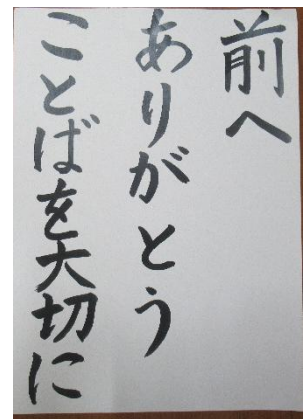 前へ
ありがとう
ことばを大切に